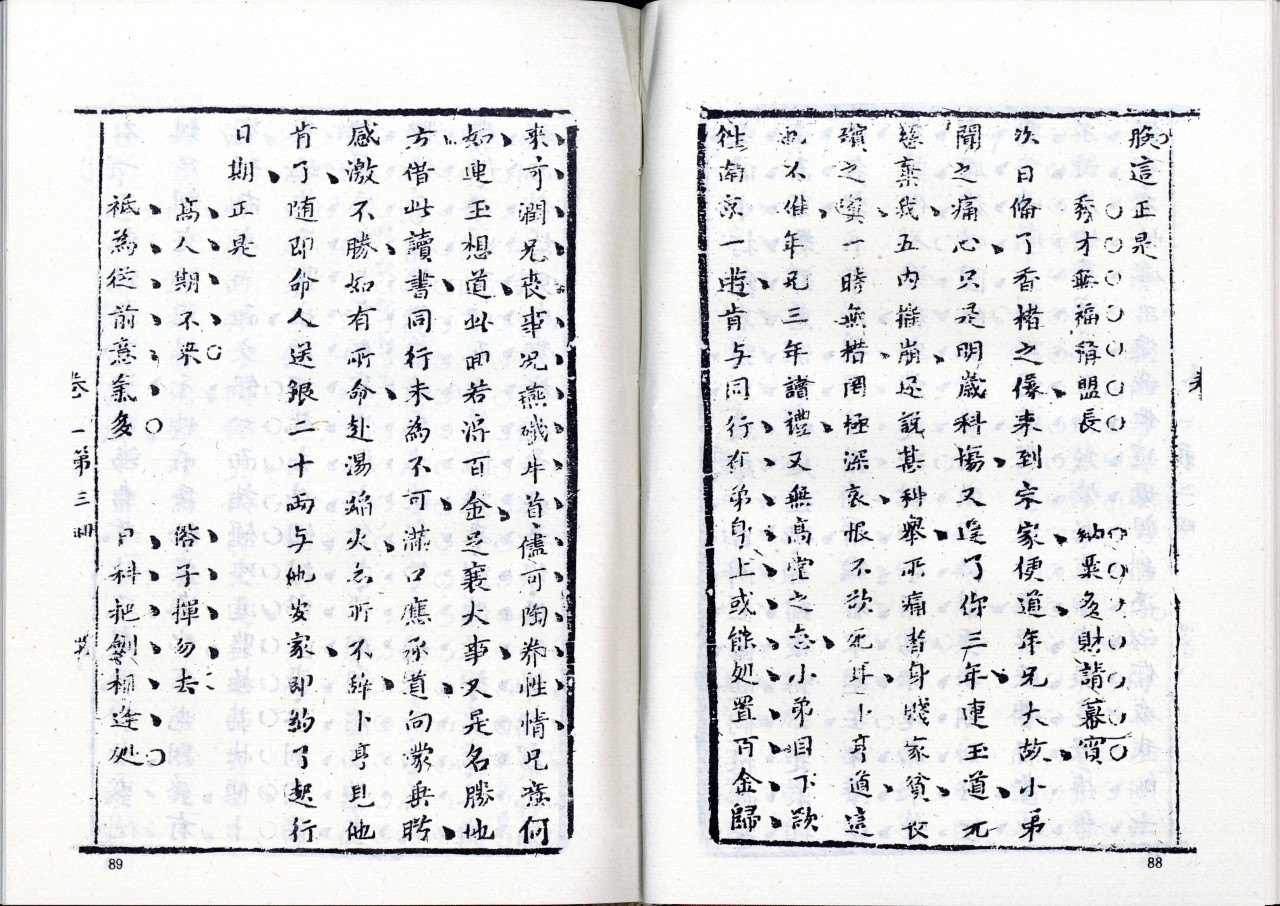 晚這正是
秀才無福稱盟長 納粟多財請幕賓
次日俻了香楮之儀来到宗家便道年兄大故小弟
聞之痛心只是明歳科塲又遲了你三年連玉道元
慈棄我五内摧崩还說甚科舉所痛者身賤家貧衣
殯之具一時無措罔極深哀恨不欲死卞亨道這
也不惟年兄三年讀禮又無高堂之念小弟目下欲
徃南京一遊肯与同行在弟身上或能処置百金歸
88
来可濶兄丧事况燕磯牛首儘可陶养性情兄意何
如連玉想道此囬若淂百金足襄大事又是名勝地
方借此讀書同行未為不可滿口應承道向蒙垂盻
感激不勝如有所命赴湯蹈火亦所不辞卞亨見他
肯了随即命人送銀二十両与他安家即約了起行
日期正是
高人期不染 俗子揮勿去
祗為従前意氣多 戶科把劍相逢処
卷一第三囬
89